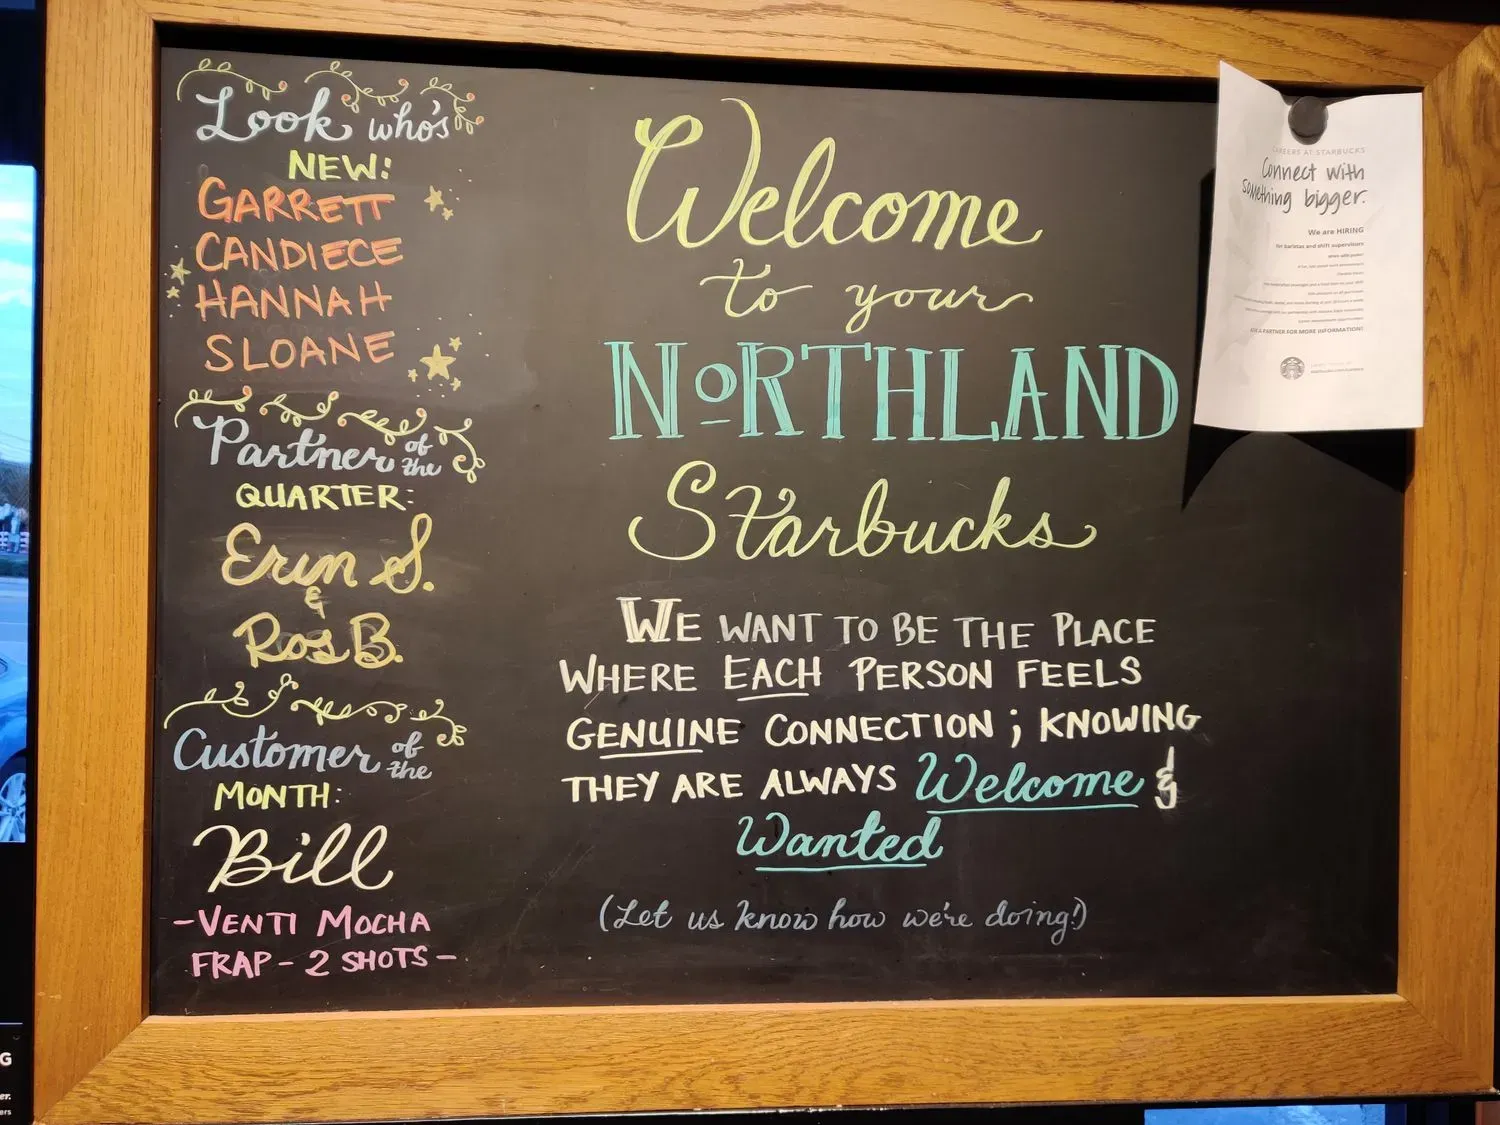 Look who's
NEW:
GARRETT
CANDIECE
HANNAH
SLOANE
Partner of the
QUARTER:
Erin S.
&
Ros B.
Customer of the
MONTH:
Bill
-VENTI MOCHA
FRAP - 2 SHOTS -
Welcome
to your
NORTHLAND
Starbucks
WE WANT TO BE THE PLACE
WHERE EACH PERSON FEELS
GENUINE CONNECTION ; KNOWING
THEY ARE ALWAYS Welcome &
Wanted
(Let us know how we're doing!)
CAREERS AT STARBUCKS
Connect with
something bigger.
We are HIRING
for baristas and shift supervisors
ASK A PARTNER FOR MORE INFORMATION!
G
er.
ers